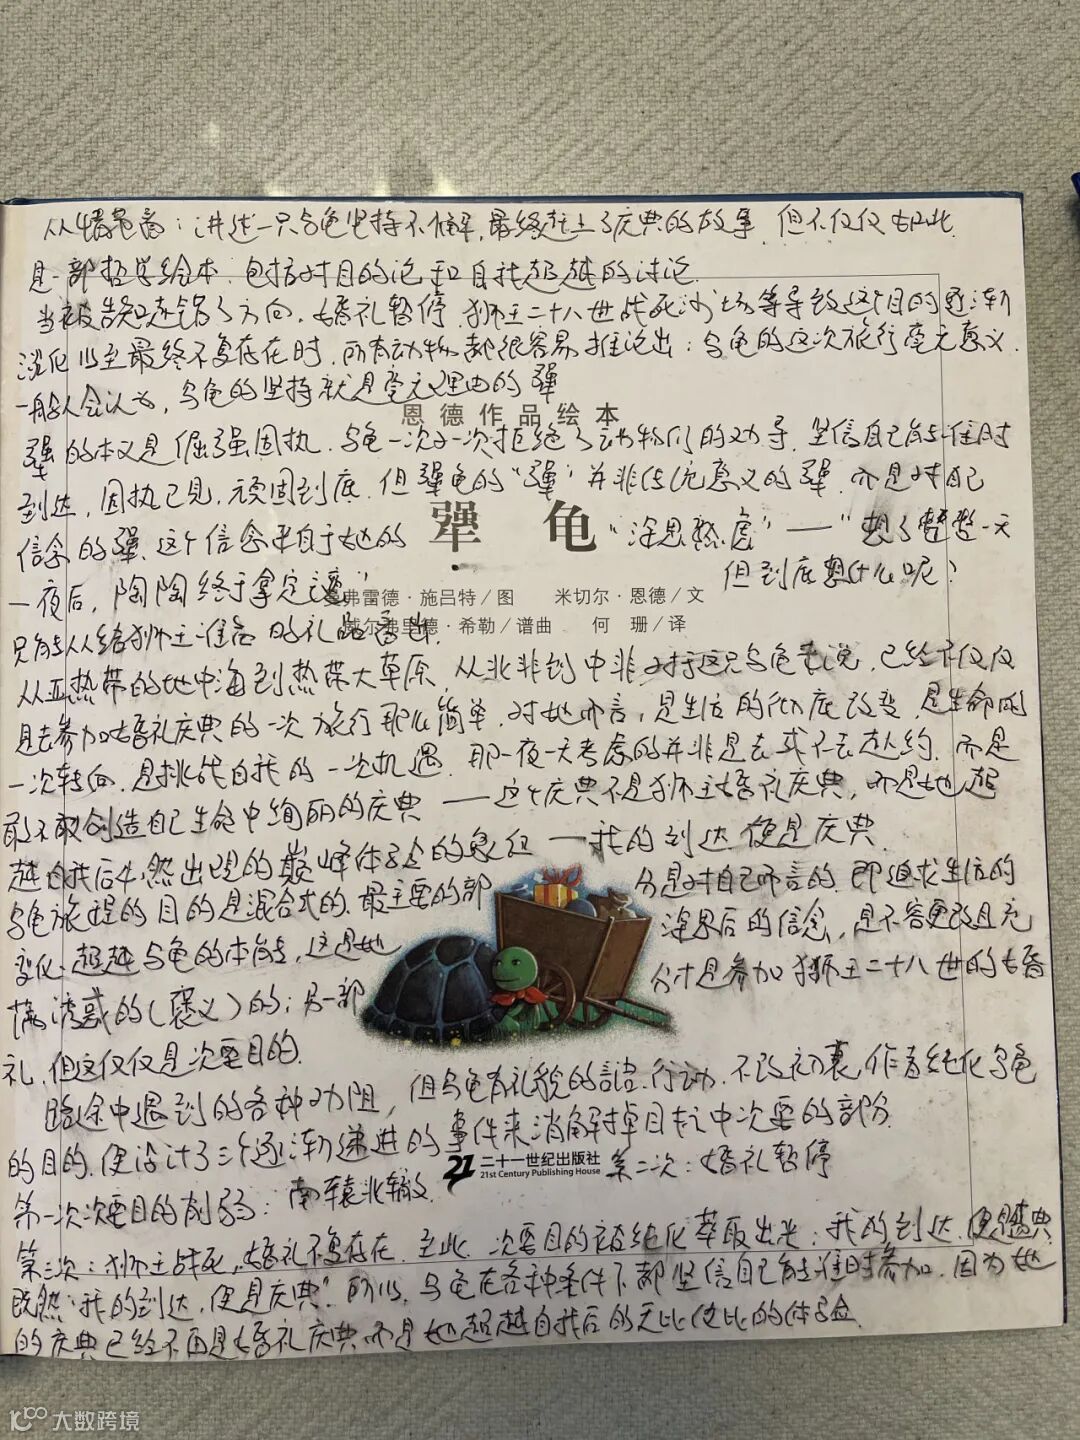 从情节看：讲述一只乌龟坚持不懈，最终赶上了庆典的故事，但不仅仅如此
是一部哲学绘本：包括对目的论和自我超越的讨论
当被告知走错了方向，婚礼暂停，狮王二十八世战死沙场等导致这个目的逐渐
淡化以至最终不复存在时，所有动物都很容易推论出：乌龟的这次旅行毫无意义．
一般人会认为，乌龟的坚持就是毫无理由的犟
恩德作品绘本
犟的本义是倔强固执．乌龟一次又一次拒绝了动物们的劝导，坚信自己能准时
到达，固执己见，顽固到底．但犟龟的“犟”并非传统意义的犟，而是对自己
信念的犟、这个信念来自于她的
犟龟
“深思熟虑”——“想了整整一天
一夜后，陶陶终于拿定主意”
但到底想什么呢？
曼弗雷德·施吕特／图 米切尔·恩德／文
威尔弗里德·希勒／谱曲 何珊／译
只能从给狮王准备的礼品看出
从亚热带的地中海到热带大草原，从北非到中非对于这只乌龟来说，已经不仅仅
是去参加婚礼庆典的一次旅行那么简单，对她而言，是生活的彻底改变，是生命的
一次转向，是挑战自我的一次机遇．那一夜一天考虑的并非是去或不去赴约．而是
敢不敢创造自己生命中绚丽的庆典——这个庆典不是狮王婚礼庆典，而是她超
越自我后，油然出现的巅峰体验的象征——我的到达便是庆典．
乌龟旅程的目的是混合式的．最主要的部分是对自己而言的．即追求生活的
变化、超越乌龟的本能，这是她深思后的信念，是不容更改且充
满诱惑的（褒义）的；另一部分才是参加狮王二十八世的婚
礼，但这仅仅是次要目的．
路途中遇到的各种劝阻，但乌龟有礼貌的 行动．不改初衷，作者纯化乌龟
的目的．便设计了三个逐渐递进的事件来消解掉目标中次要的部分．
21 二十一世纪出版社
21st Century Publishing House
第一次次要目的削弱：南辕北辙． 第二次：婚礼暂停
第三次：狮王战死，婚礼不复存在．至此 次要目的被纯化萃取出来：我的到达，便是庆典
既然“我的到达，便是庆典”所以，乌龟在各种条件下都坚信自己能准时参加．因为她
的庆典已经不再是婚礼庆典而是她超越自我后的无比 的体验
大数跨境